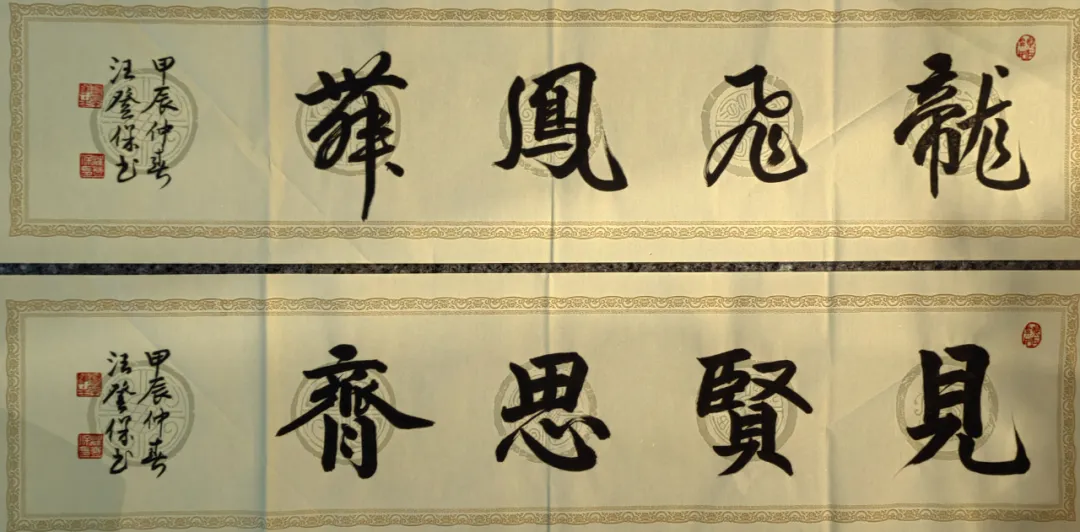 龍飛鳳舞
甲辰仲春
汪登保书
見賢思齊
甲辰仲春
汪登保书